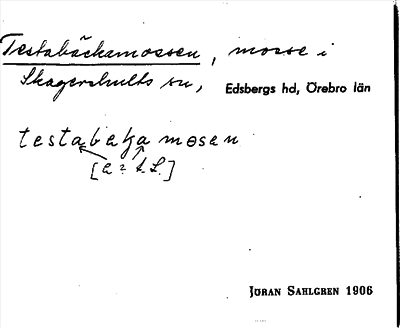 Testabäckamossen, mosse i
Skagershults sn, Edsbergs hd, Örebro län
testabekamosen
[a? J. S.]
JÖRAN SAHLGREN 1906